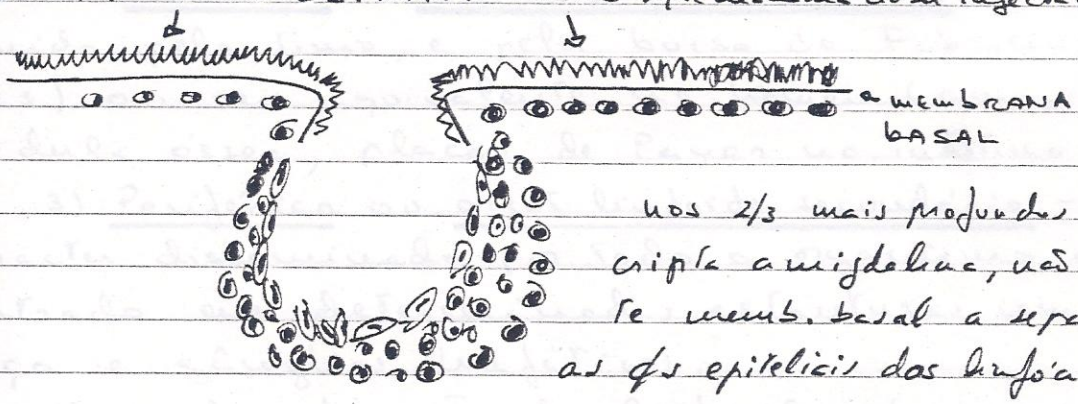 MEMBRANA
BASAL
nos 2/3 mais profundos
cripta amigdalina, não
te memb. basal a sepa
as φs epiteliais das linfóa